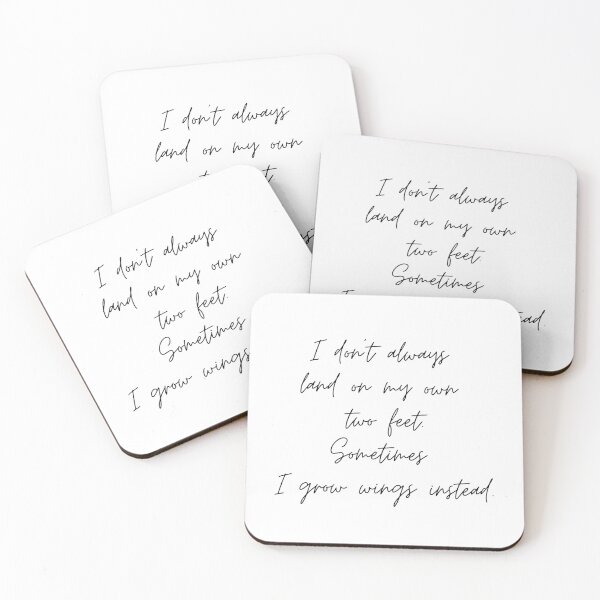 I don't always
land on my own
I don't always
land on my own
two feet.
Sometimes
I
I don't always
land on my own
two feet.
Sometimes
I grow wings
I don't always
land on my own
two feet.
Sometimes
I grow wings instead.